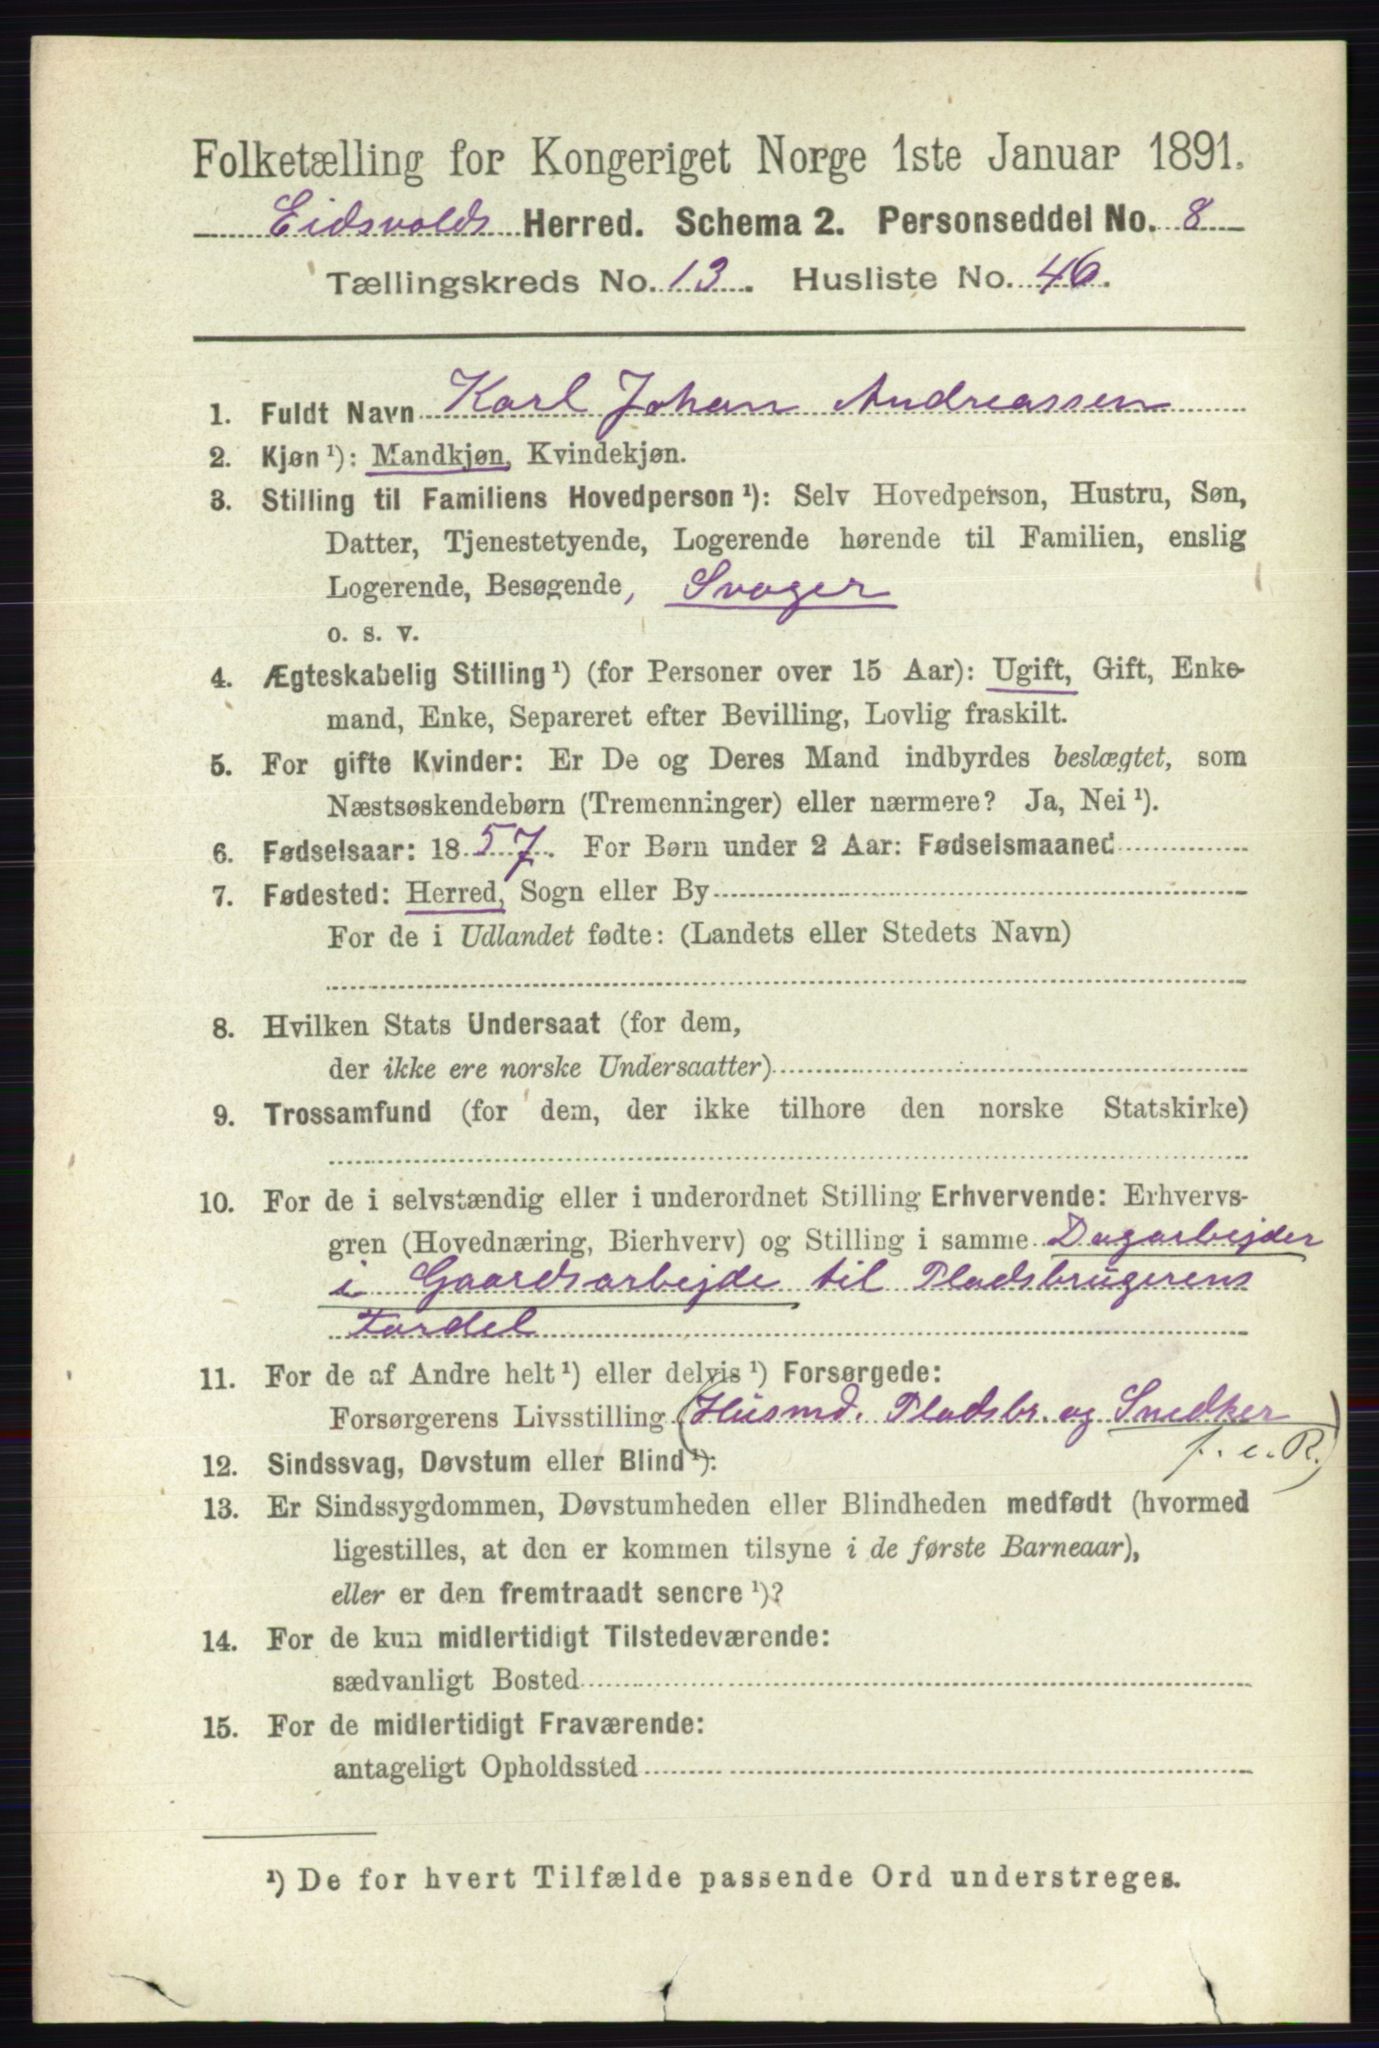 Folketælling for Kongeriget Norge 1ste Januar 1891.
Eidsvolds Herred. Schema 2. Personseddel No. 8
Tællingskreds No. 13. Husliste No. 46.
1. Fuldt Navn Karl Johan Andreassen
2. Kjøn ¹): Mandkjøn, Kvindekjøn.
3. Stilling til Familiens Hovedperson ¹): Selv Hovedperson, Hustru, Søn,
Datter, Tjenestetyende, Logerende hørende til Familien, enslig
Logerende, Besøgende, Svoger
o. s. v.
4. Ægteskabelig Stilling ¹) (for Personer over 15 Aar): Ugift, Gift, Enke-
mand, Enke, Separeret efter Bevilling, Lovlig fraskilt.
5. For gifte Kvinder: Er De og Deres Mand indbyrdes beslægtet, som
Næstsøskendebørn (Tremenninger) eller nærmere? Ja, Nei ¹).
6. Fødselsaar: 1857. For Børn under 2 Aar: Fødselsmaaned
7. Fødested: Herred, Sogn eller By
For de i Udlandet fødte: (Landets eller Stedets Navn)
8. Hvilken Stats Undersaat (for dem,
der ikke ere norske Undersaatter)
9. Trossamfund (for dem, der ikke tilhøre den norske Statskirke)
10. For de i selvstændig eller i underordnet Stilling Erhvervende: Erhvervs-
gren (Hovednæring, Bierhverv) og Stilling i samme Dagarbejder
i Gaardsarbejde til Pladsbrugerens
Fordel
11. For de af Andre helt ¹) eller delvis ¹) Forsørgede:
Forsørgerens Livsstilling (Husmd. Pladsbr. og Snedker
f. e. R.)
12. Sindssvag, Døvstum eller Blind ¹):
13. Er Sindssygdommen, Døvstumheden eller Blindheden medfødt (hvormed
ligestilles, at den er kommen tilsyne i de første Barneaar),
eller er den fremtraadt senere ¹)?
14. For de kun midlertidigt Tilstedeværende:
sædvanligt Bosted
15. For de midlertidigt Fraværende:
antageligt Opholdssted
¹) De for hvert Tilfælde passende Ord understreges.